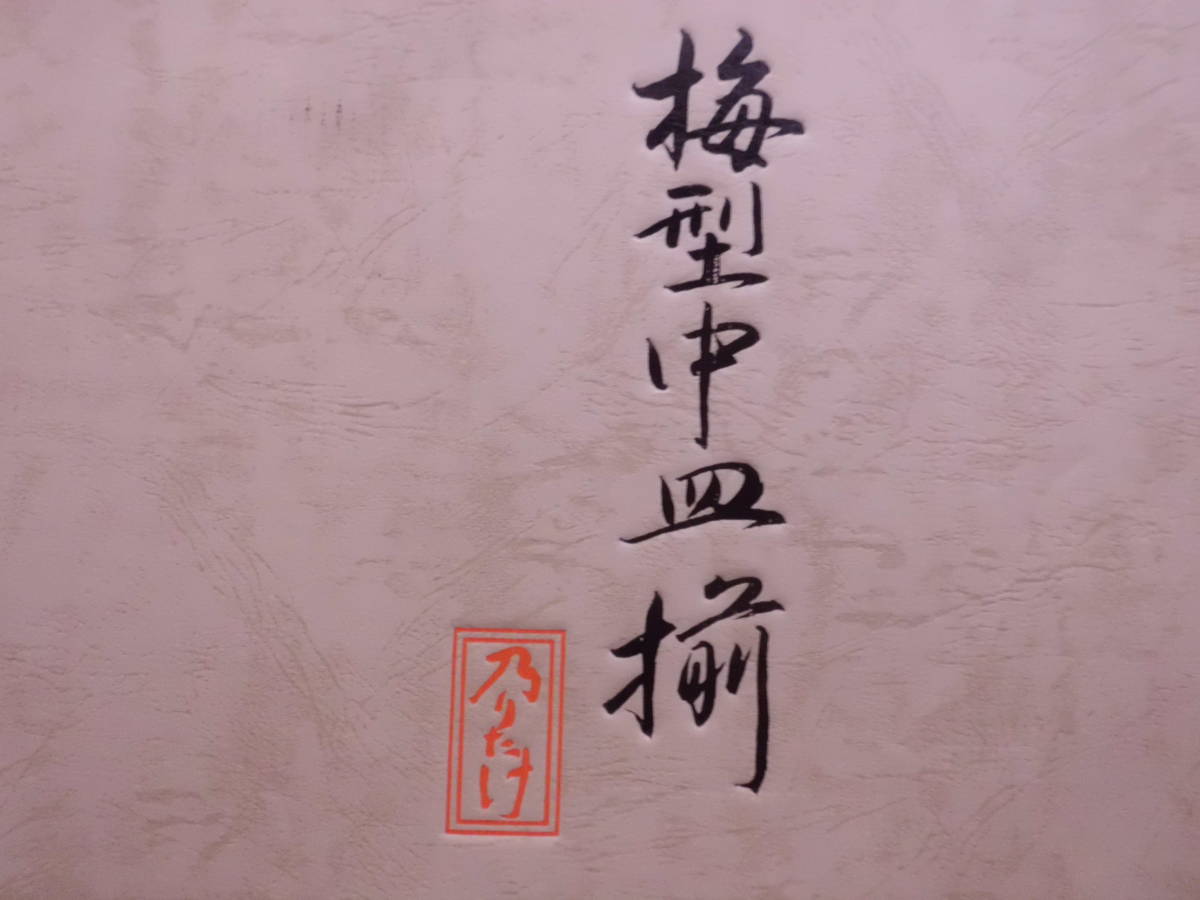 梅型中皿揃
乃りたけ